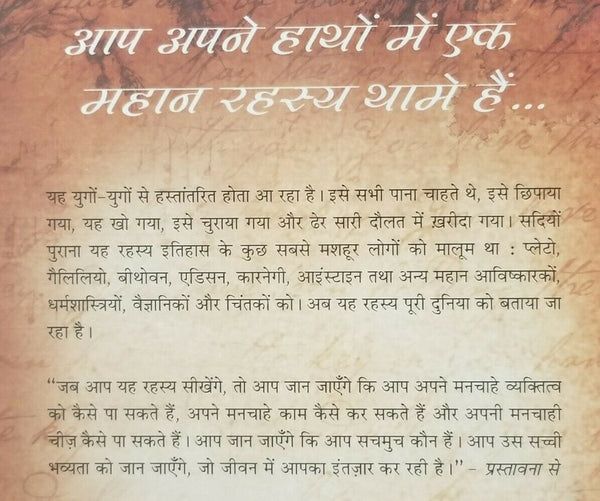 आप अपने हाथों में एक
महान रहस्य थामे हैं...
यह युगों-युगों से हस्तांतरित होता आ रहा है। इसे सभी पाना चाहते थे, इसे छिपाया
गया, यह खो गया, इसे चुराया गया और ढेर सारी दौलत में ख़रीदा गया। सदियों
पुराना यह रहस्य इतिहास के कुछ सबसे मशहूर लोगों को मालूम था : प्लेटो,
गैलिलियो, बीथोवन, एडिसन, कारनेगी, आइंस्टाइन तथा अन्य महान आविष्कारकों,
धर्मशास्त्रियों, वैज्ञानिकों और चिंतकों को। अब यह रहस्य पूरी दुनिया को बताया जा
रहा है।
“जब आप यह रहस्य सीखेंगे, तो आप जान जाएँगे कि आप अपने मनचाहे व्यक्तित्व
को कैसे पा सकते हैं, अपने मनचाहे काम कैसे कर सकते हैं और अपनी मनचाही
चीज़ कैसे पा सकते हैं। आप जान जाएँगे कि आप सचमुच कौन हैं। आप उस सच्ची
भव्यता को जान जाएँगे, जो जीवन में आपका इंतज़ार कर रही है।” – प्रस्तावना से